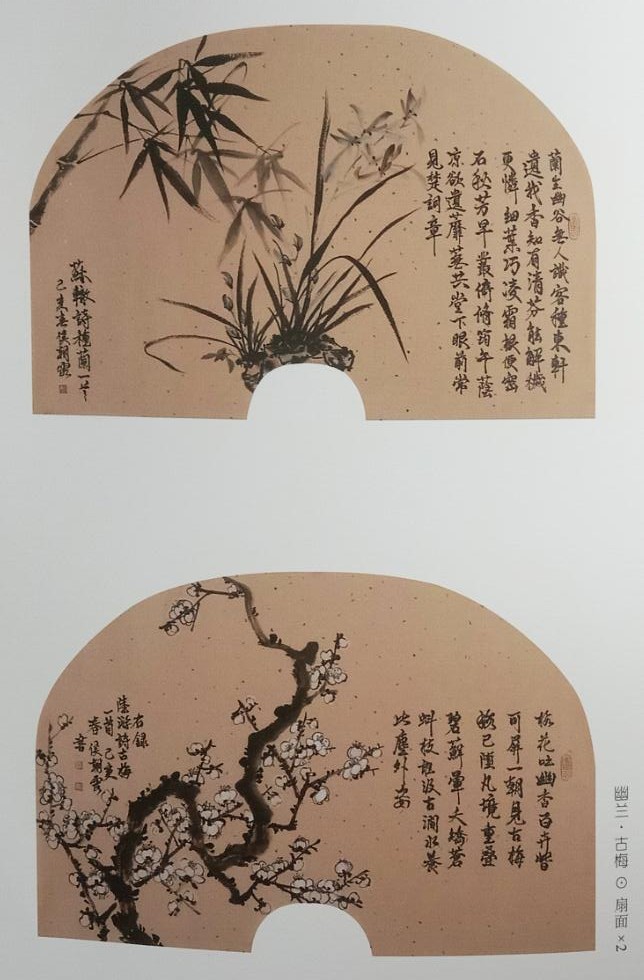 蘭生幽谷無人識客種東軒
遺我香知有清芬能解穢
更憐細葉巧凌霜根便密
石秋芳早叢倚脩筠午蔭
涼欲遺蘼蕪共堂下眼前常
見楚詞章
蘇轍詩種蘭一首
己亥春侯朝
梅花吐幽香百卉皆
可屏一朝見古梅
已墮凡境重疊
碧蘚暈夭矯蒼
虯枝誰汲古澗水養
此塵外姿
右錄
陸游詩古梅
一首己亥
春侯朝
書
幽兰·古梅 ⊙ 扇面×2